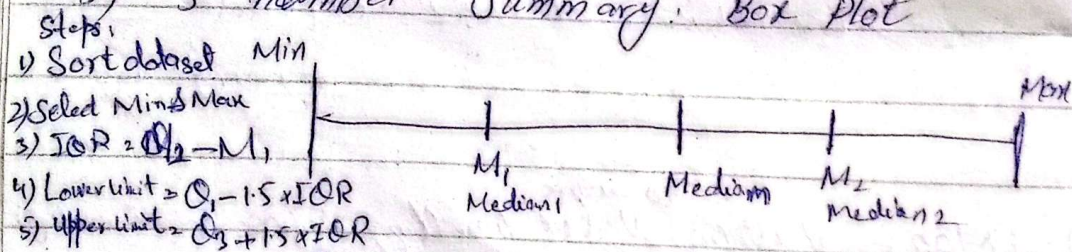 Summary: Box Plot
Steps:
1) Sort dataset
2) Select Min & Max
3) IQR = Q2 - M1
4) Lower limit = Q1 - 1.5 x IQR
5) Upper limit = Q3 + 1.5 x IQR
Min
Max
M1
Median1
Median
M2
Median2